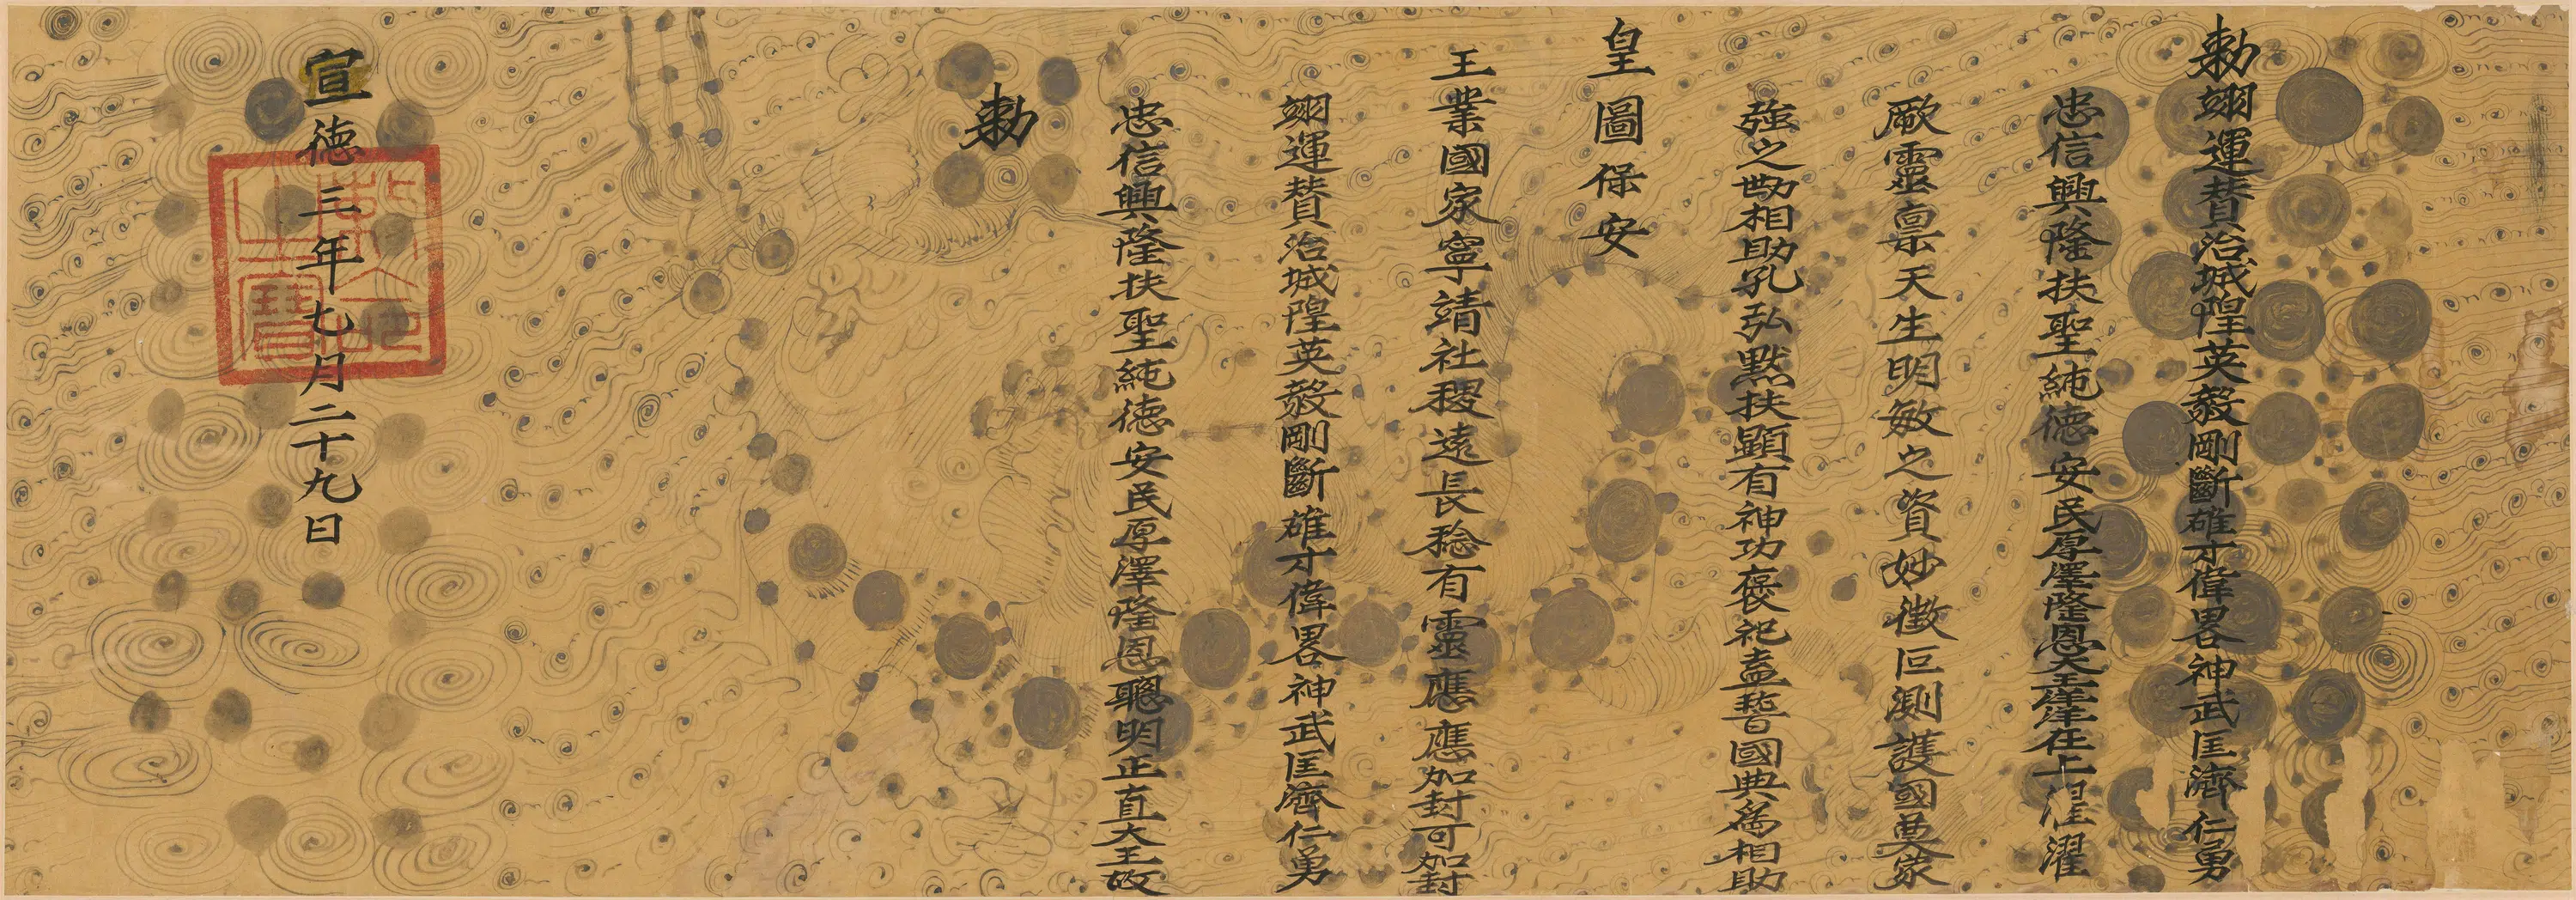 勅翊運賛治城隍英毅剛斷雄才偉畧神武匡濟仁勇
忠信興隆扶聖純德安民厚澤隆恩大王洋洋在上濯濯
厥靈稟天生明敏之資妙徴叵測護國奠家
強之勛相助孔弘默扶顕有神功褒祀盍暬國典爲相助
皇圖保安
王業國家寧靖社稷遠長稔有靈應應加封可加封
翊運賛治城隍英毅剛斷雄才偉畧神武匡濟仁勇
忠信興隆扶聖純德安民厚澤隆恩聰明正直大王故
勅
宣德三年七月二十九日
敕命之寶